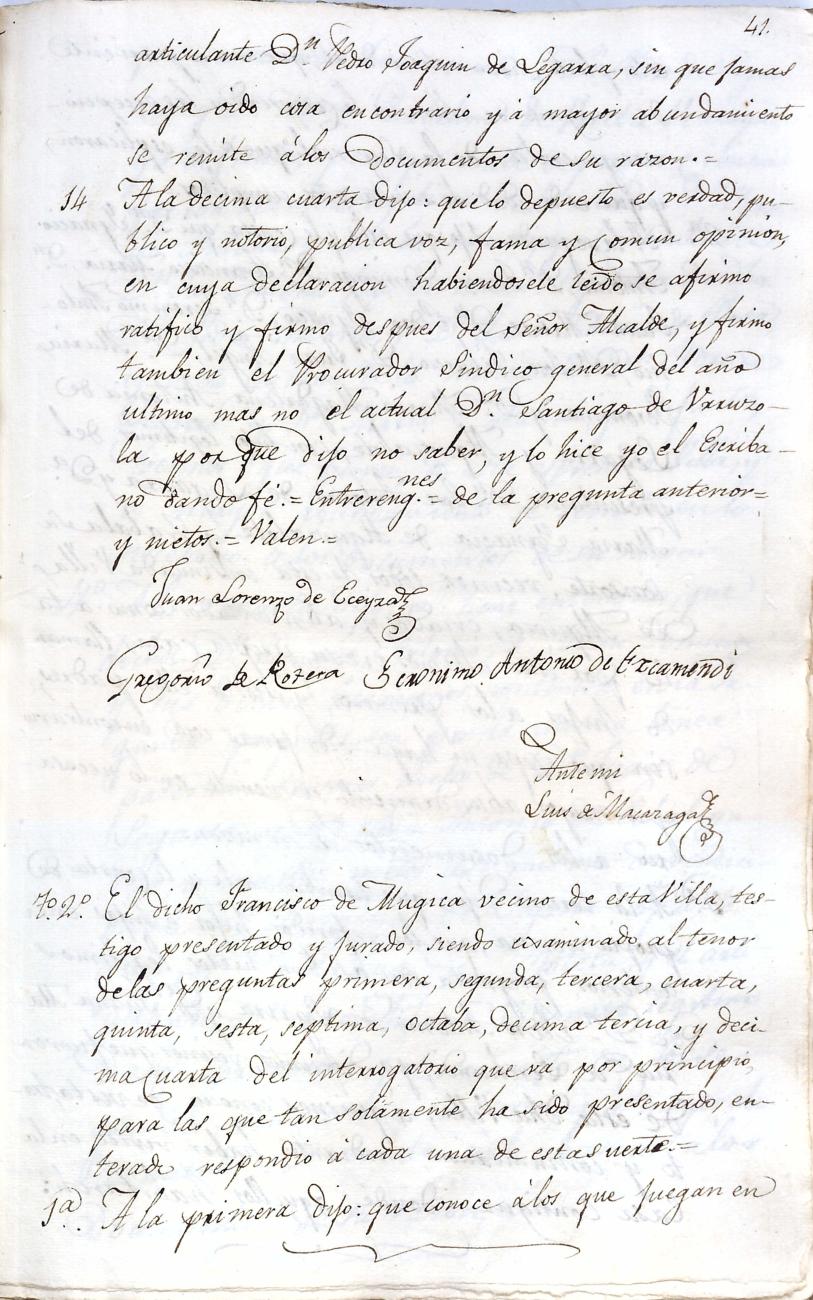 41.
articulante Dn. Pedro Joaquin de Legarra, sin que jamas
haya oido cosa encontrario y á mayor abundamiento
se remite álos Documentos de su razon.=
14 Ala decima cuarta dijo: quelo depuesto es verdad, pu-
blico y notorio, publica voz, fama y Comun opinión,
en cuya declaracion habiendosele leido se afirmo
ratifico y firmo despues del Señor Alcalde, y firmo
tambien el Procurador Sindico general del año
ultimo mas no el actual Dn. Santiago de Vrruzo-
la por que dijo no saber, y lo hice yo el Escriba-
no dando fé.= Entrerengnes.= de la pregunta anterior=
y nietos.= Valen.=
Juan Lorenzo de Eceyza
Gregorio de Rotera Geronimo Antonio de Ezcamendi
Antemi
Luis de Macazaga
To. 2o. El dicho Francisco de Mugica vecino de esta Villa, tes-
tigo presentado y jurado, siendo examinado al tenor
delas preguntas primera, segunda, tercera, cuarta,
quinta, sesta, septima, octaba, decima tercia, y deci-
ma Cuarta del interrogatorio que va por principio,
para las que tan solamente ha sido presentado, en-
terado respondio á cada una de esta suerte.=
1a. A la primera dijo: que conoce álos que juegan en